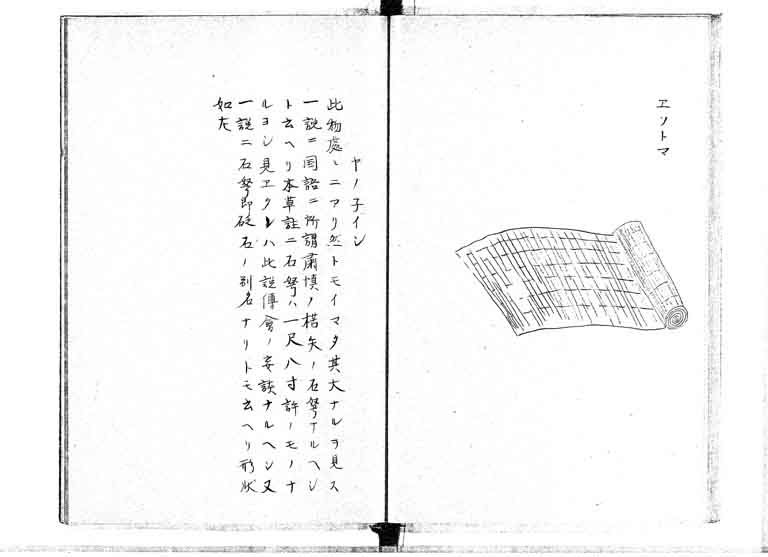 ヱソトマ
ヤノ子イシ
此物處〻ニアリ然トモイマタ其大ナルヲ見ス
一說ニ国語ニ所謂肅慎ノ楛矢ノ石砮ナルヘシ
ト云ヘリ本草註ニ石砮ハ一尺八寸許ノモノナ
ルヨシ見ヱタレハ此說傅會ノ妄談ナルヘシ又
一說ニ石砮即砭石ノ別名ナリトモ云ヘリ形狀
如左